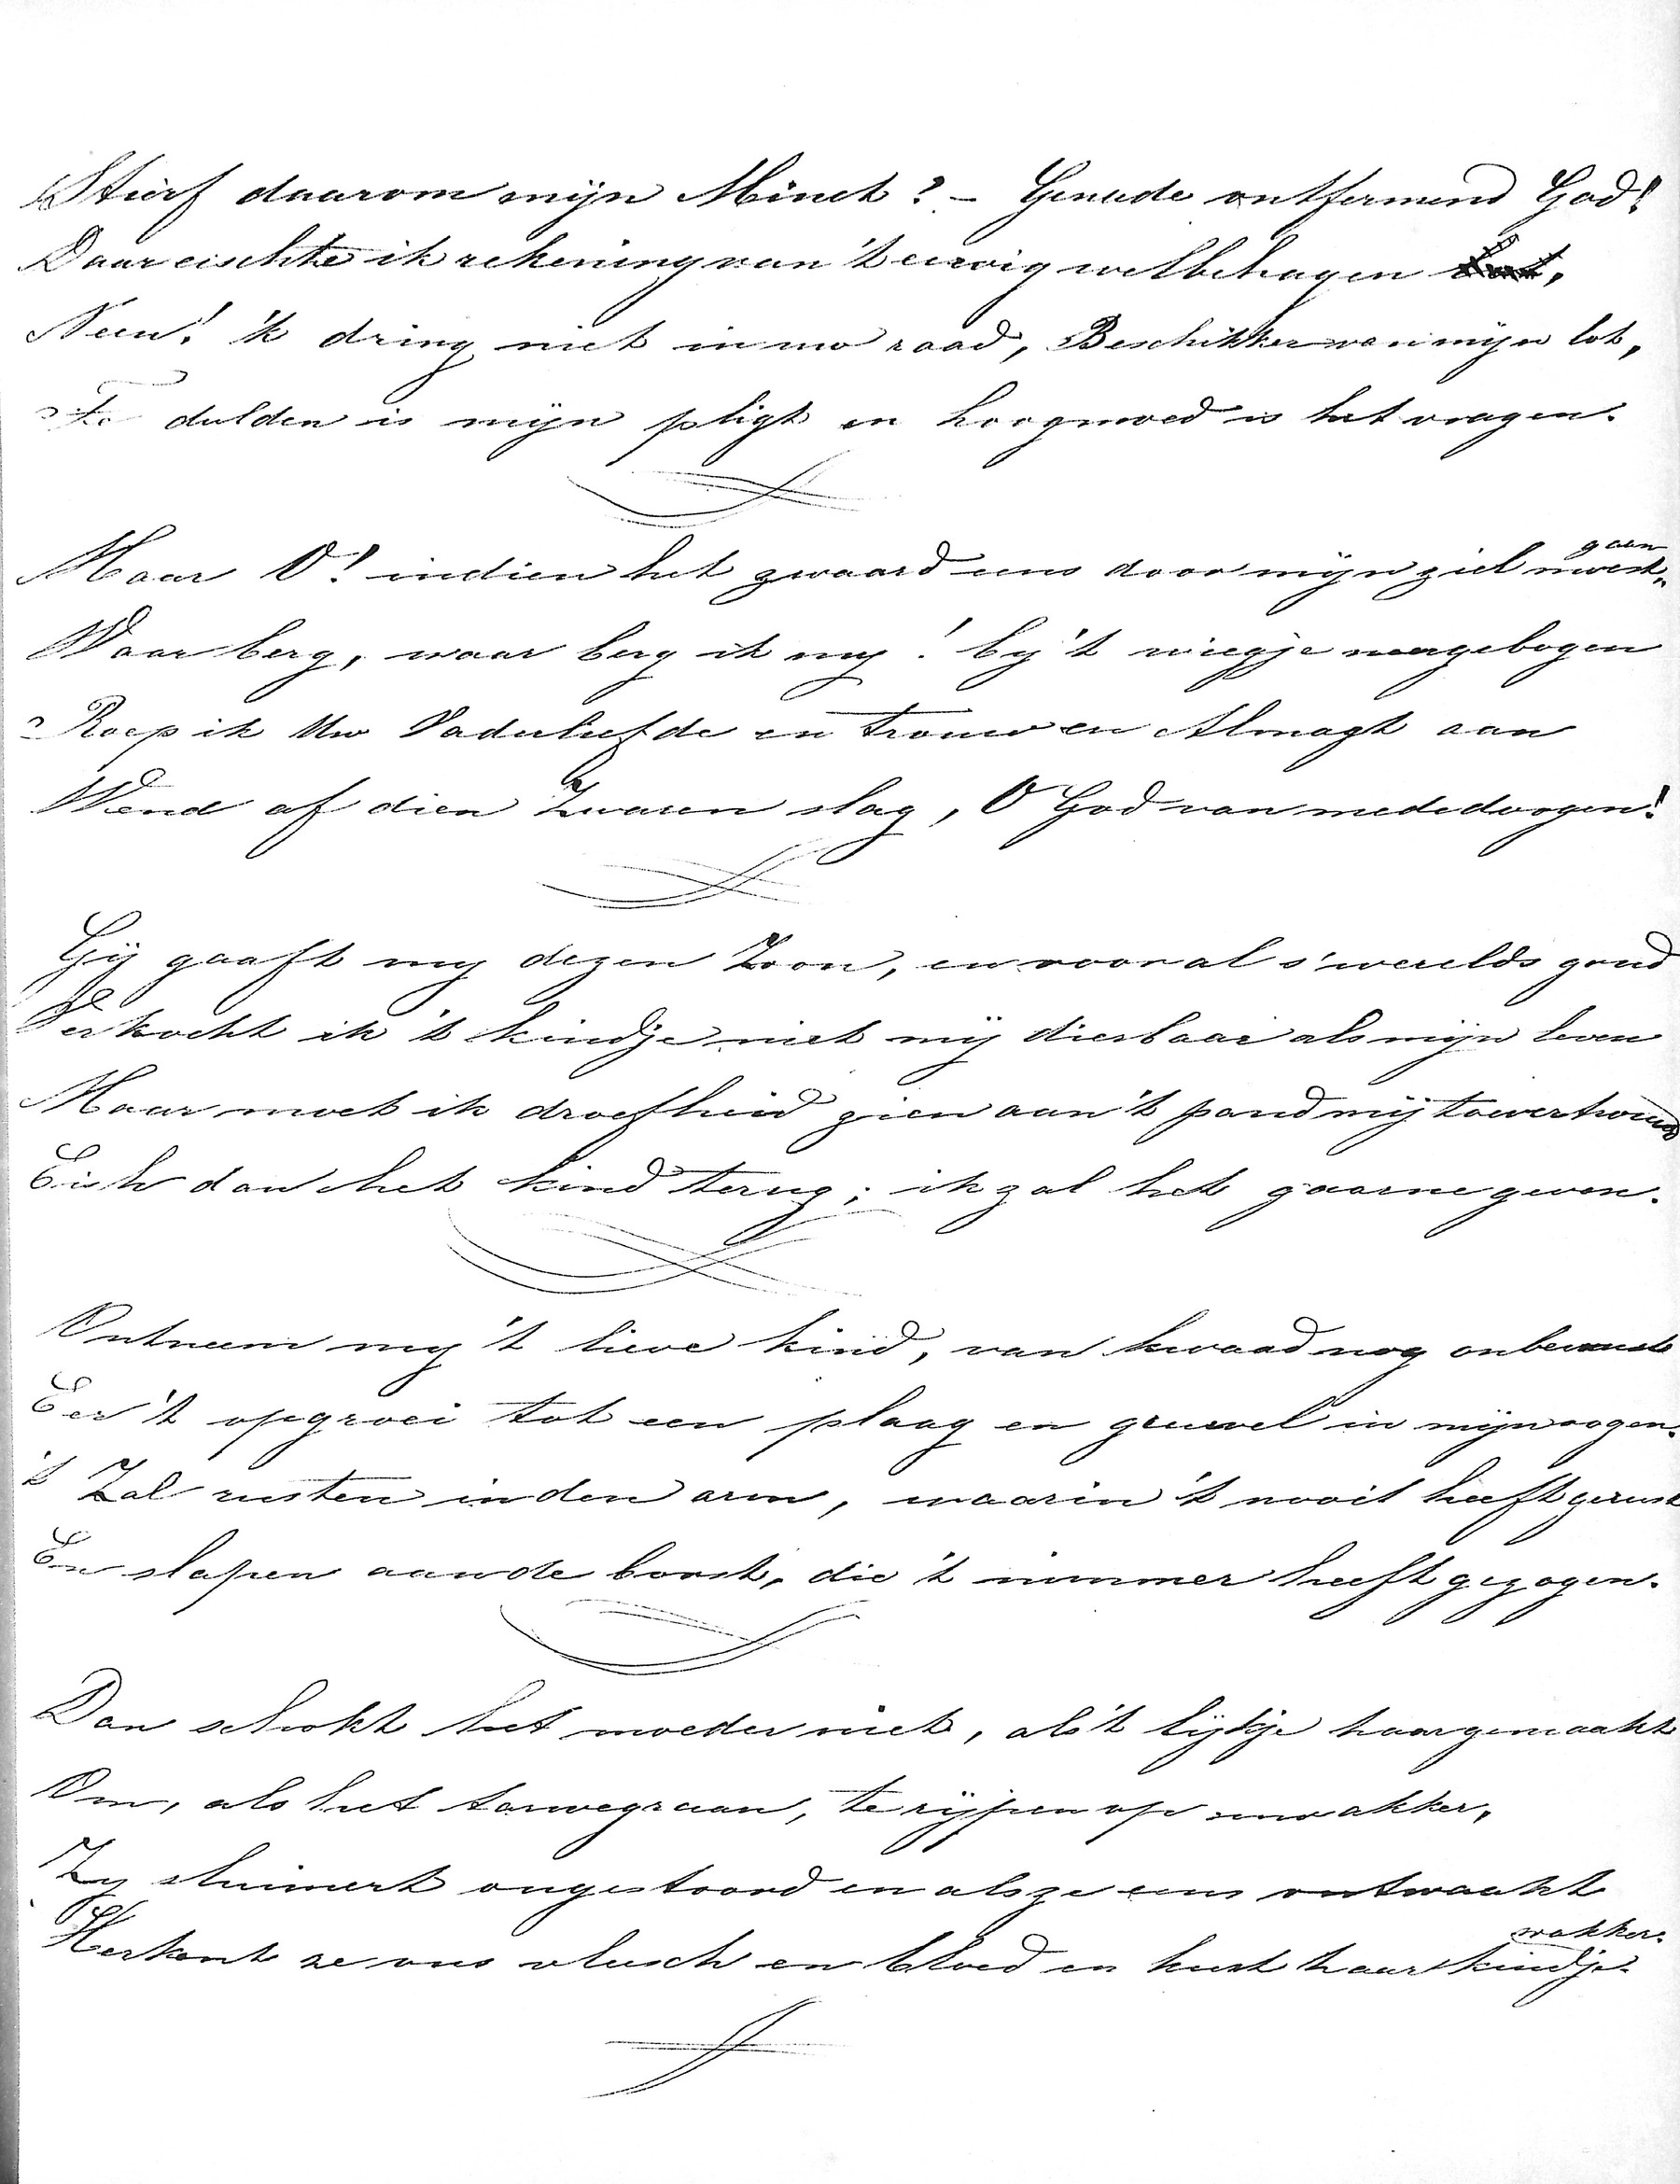 Stierf daarom mijn Minet? – Genade ontfermend God!
Daar eischte ik rekening van 't eeuwig welbehagen
Neen! 'k dring niet in uw raad, Beschikker van mijn lot,
Te dulden is mijn pligt en hoogmoed is het vragen.
Maar O! indien het zwaard eens door mijn ziel moest gaan
Waar berg, waar berg ik my! by 't wiegje neergebogen
Roep ik Uw Vaderliefde en trouw en Almagt aan
Wend af dien Zwaren slag, O God van mededoogen!
Gij gaaft my dezen Zoon, en voor al s'werelds goud
Verkocht ik 't kindje niet mij dierbaar als mijn leven
Maar moet ik droefheid zien aan 't pand mij toevertrouwd
Eisch dan het kind terug; ik zal het gaarne geven.
Ontneem my 't lieve kind, van kwaad nog onbewust
Eer 't opgroei tot een plaag en gruwel in mijn oogen.
't Zal rusten in den arm, waarin 't nooit heeft gerust
En slapen aan de borst, die 't nimmer heeft gezogen.
Dan schokt het moeder niet, als 't lijkje haar genaakt
Om, als het tarwegraan, te rijpen op uw akker,
Zy sluimert ongestoord en als ze eens ontwaakt
Herkent ze ons vleesch en bloed en kust haar kindje wakker.